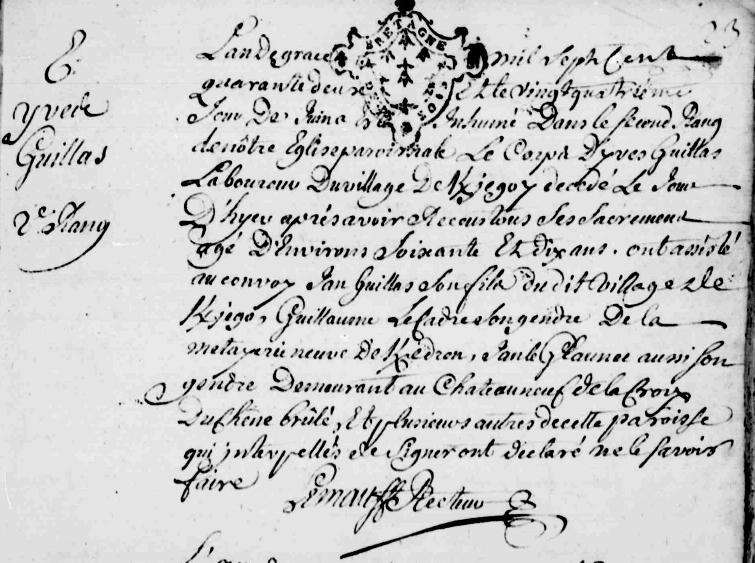 23
E.
yves
Guillas
2e Rang
L'an de grace mil sept Cent
quarante deux Et le vingt quatrième
Jour De Juin a été Inhumé Dans le second Rang
de nôtre Eglise paroissiale Le Corps D'yves Guillas
Laboureur Du village De Kjegoy decedé Le Jour
D'hyer aprés avoir Receu tous Ses Sacremens
agé D'Environs Soixante Et dix ans. ont assisté
au convoy Jan Guillas Son fils du dit Village de
Kjego, Guillaume Le Cadre Son gendre De la
metayerie neuve De Kédren, Jan Le aussi Son
gendre Demeurant au Chateauneuf de la Croix
Du Chene brûlé, Et plusieurs autres de cette paroisse
qui interpellés de Signer ont declaré ne le savoir
faire
Recteur